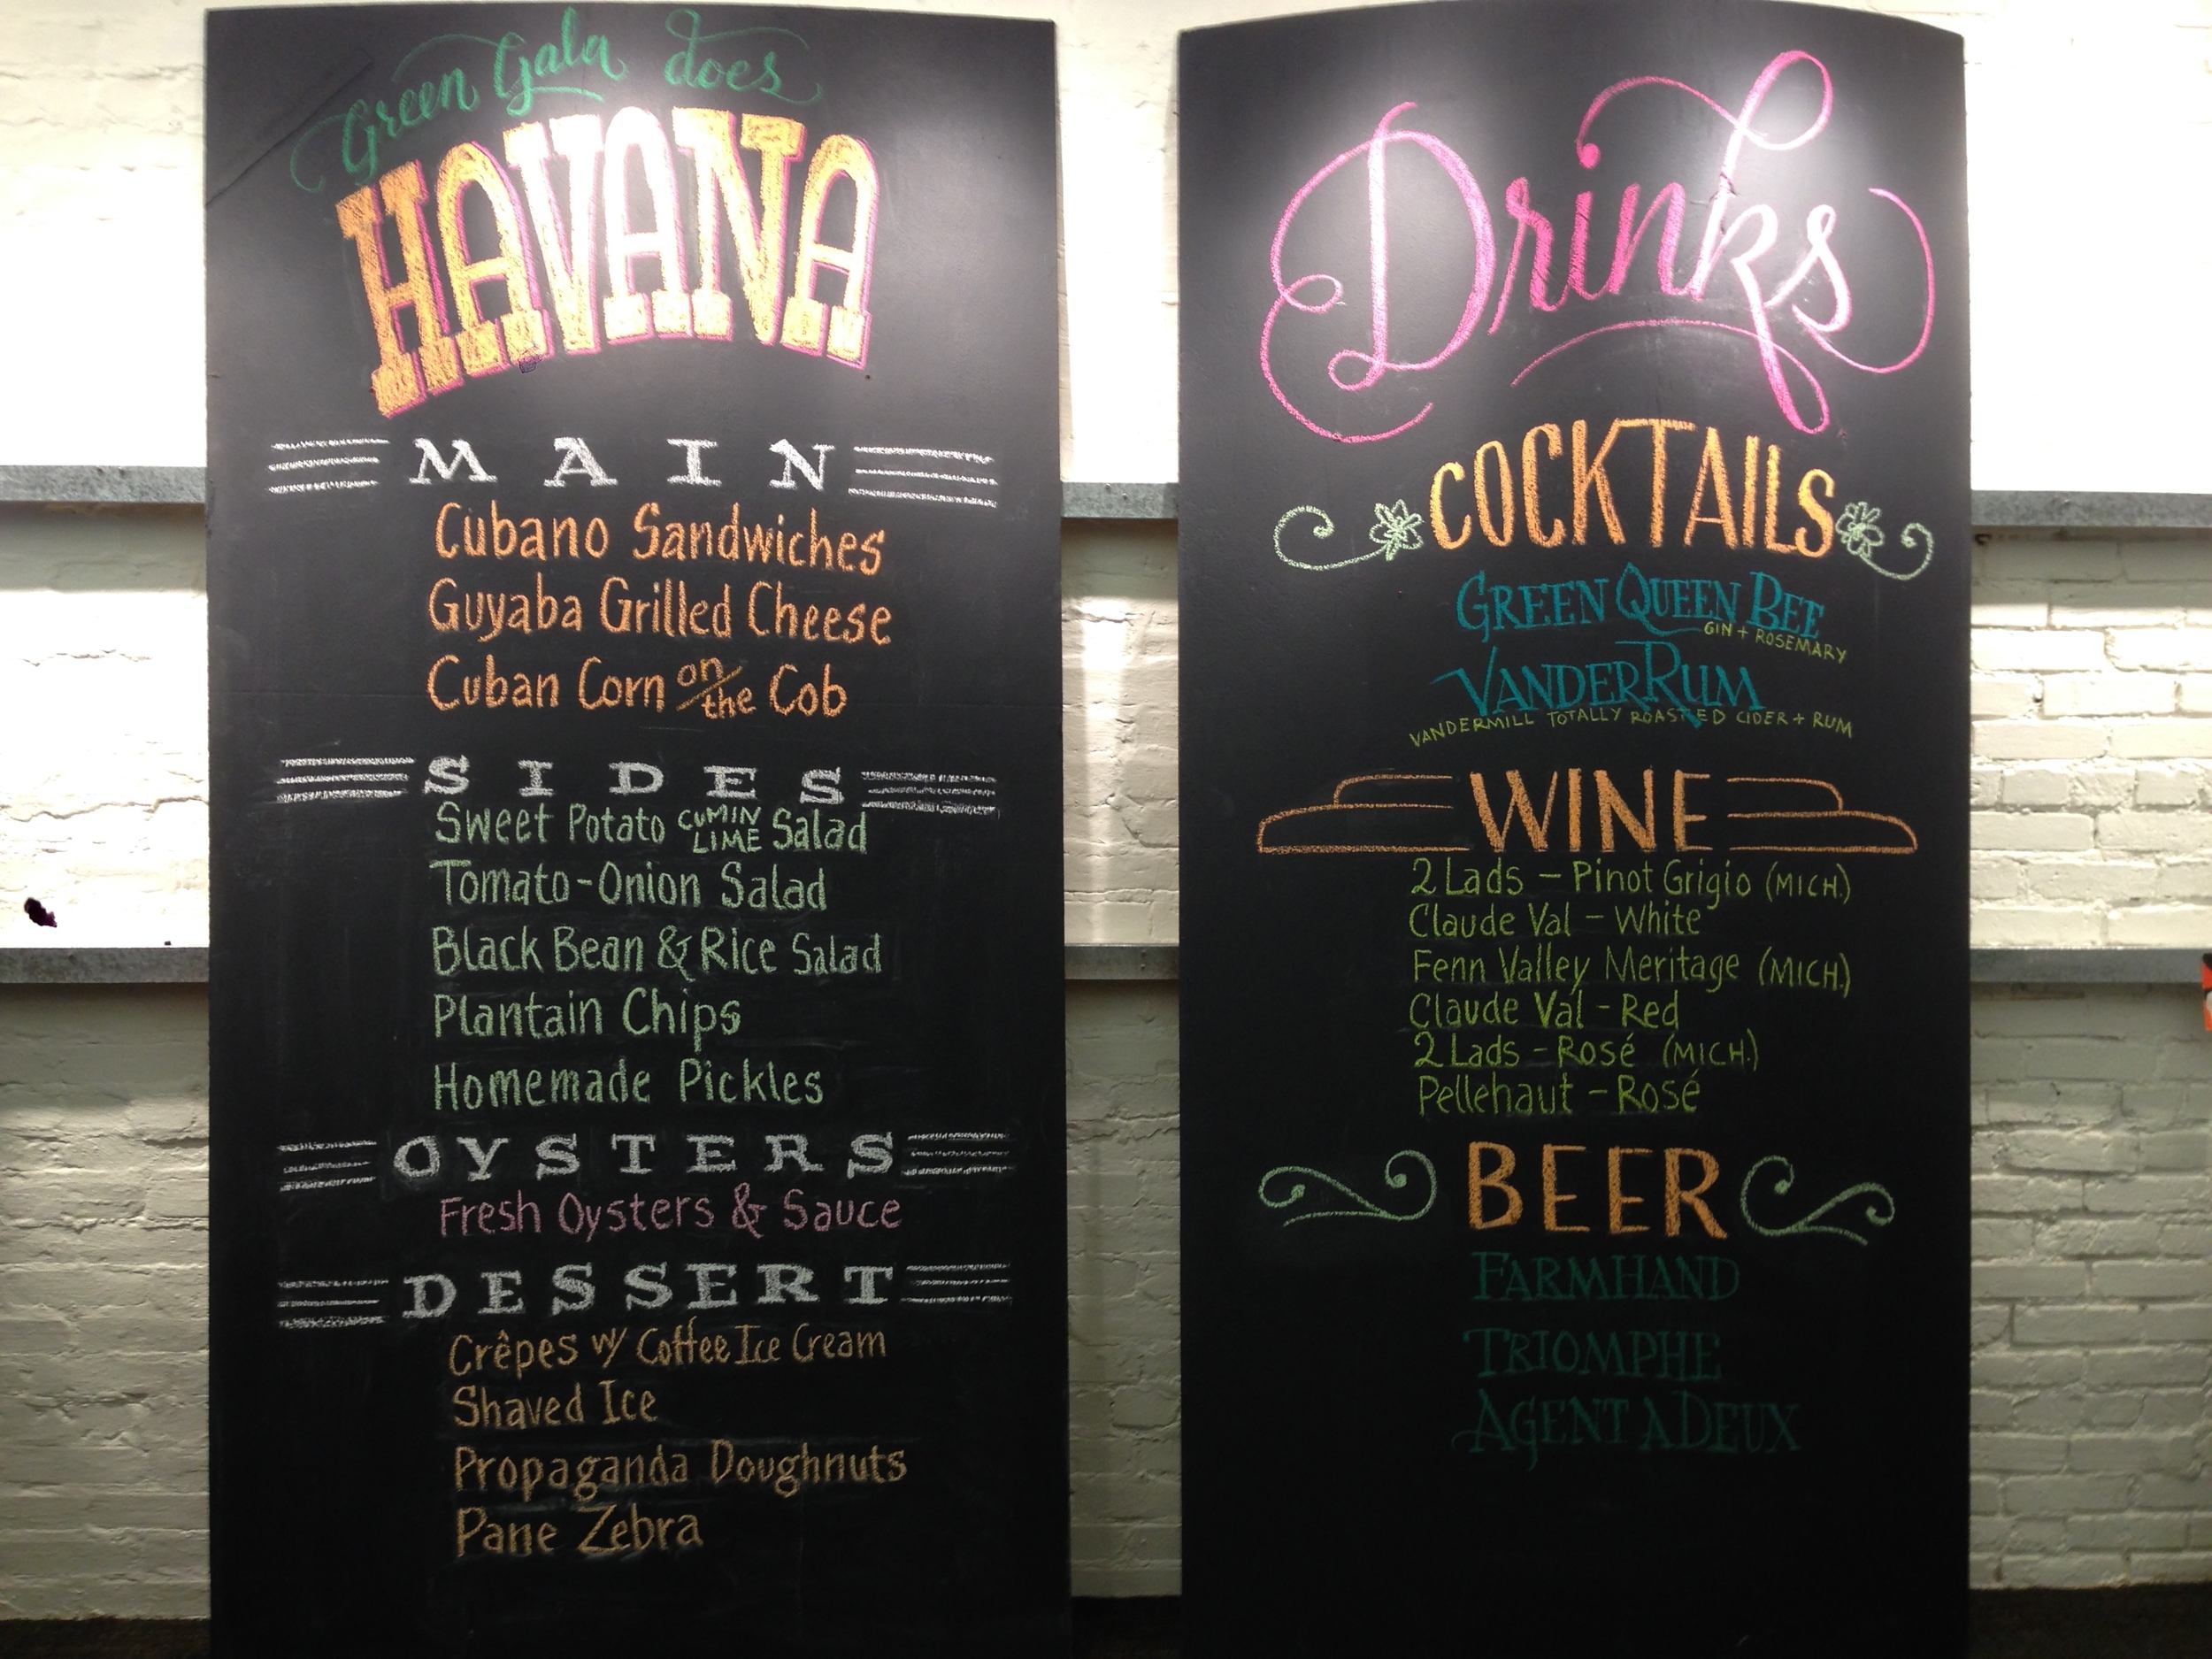 Green Gala does
HAVANA
MAIN
Cubano Sandwiches
Guyaba Grilled Cheese
Cuban Corn on the Cob
SIDES
Sweet Potato CUMIN LIME Salad
Tomato-Onion Salad
Black Bean & Rice Salad
Plantain Chips
Homemade Pickles
OYSTERS
Fresh Oysters & Sauce
DESSERT
Crêpes w/ Coffee Ice Cream
Shaved Ice
Propaganda Doughnuts
Pane Zebra
Drinks
COCKTAILS
GREEN QUEEN BEE
GIN + ROSEMARY
VANDERRUM
VANDERMILL TOTALLY ROASTED CIDER + RUM
WINE
2 Lads – Pinot Grigio (MICH.)
Claude Val – White
Fenn Valley Meritage (MICH.)
Claude Val – Red
2 Lads – Rosé (MICH.)
Pellehaut – Rosé
BEER
FARMHAND
TRIOMPHE
AGENT A DEUX